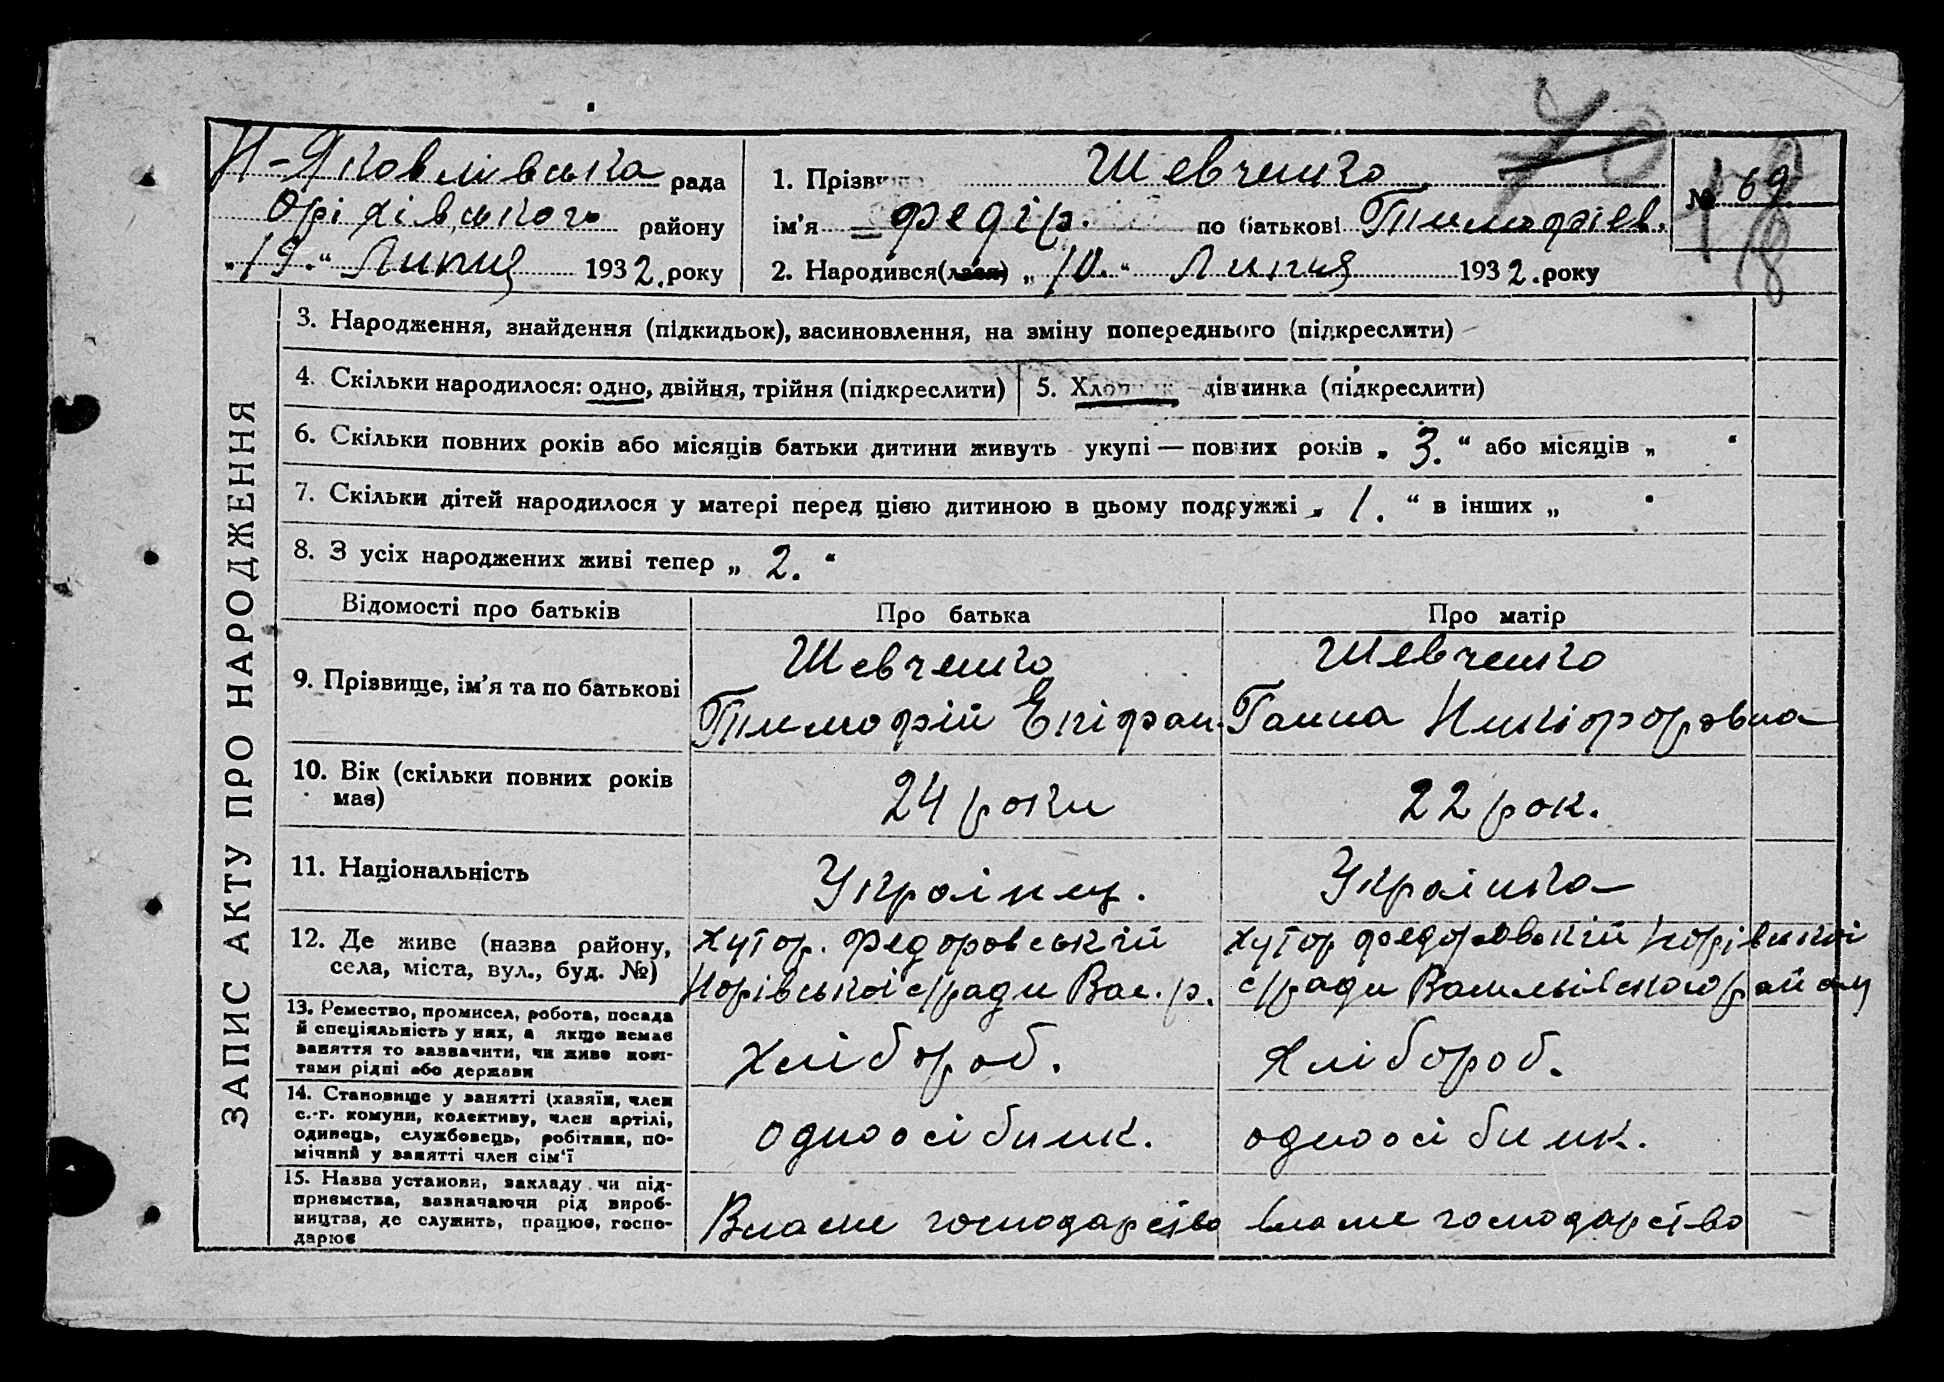 Н-Яковлівська рада
Оріхівського району
„19.“ Липця 1932. року
1. Прізвище Шевченко
ім'я Федір. по батькові Тимофієв.
2. Народився(лася) „10.“ Липця 1932. року
70
№ 69
78
ЗАПИС АКТУ ПРО НАРОДЖЕННЯ
3. Народження, знайдення (підкидьок), васиновлення, на зміну попереднього (підкреслити)
4. Скільки народилося: одно, двійня, трійня (підкреслити)
5. Хлопчик дівчинка (підкреслити)
6. Скільки повних років або місяців батьки дитини живуть укупі — повних років „3.“ або місяців „ “
7. Скільки дітей народилося у матері перед цією дитиною в цьому подружжі „1.“ в інших „ “
8. З усіх народжених живі тепер „2.“
Відомості про батьків Про батька Про матір
9. Прізвище, ім'я та по батькові
Шевченко
Тимофій Епіфан.
Шевченко
Ганна Никіфоровна
10. Вік (скільки повних років
має)
24 роки
22 рок.
11. Національність
Українец.
Українка
12. Де живе (назва району,
села, міста, вул., буд. №)
Хутор. Федоровській
с/ради Вас. р.
Хутор Федоровській
с/ради Васильівського району
13. Ремество, промисел, робота, посада
й спеціяльність у них, а якщо немає
заняття то зазначити, чи живе кош-
тами рідні або держави
Хлібороб.
Хлібороб.
14. Становище у занятті (хазяїн, член
с.-г. комуни, колективу, член артілі,
одинець, службовець, робітник, по-
мічний у занятті член сім'ї
одноосібник.
одноосібник.
15. Назва установи, закладу чи під-
приємства, зазначаючи рід вироб-
ництва, де служить, працює, госпо-
дарює
Власне господарство
власне господарство